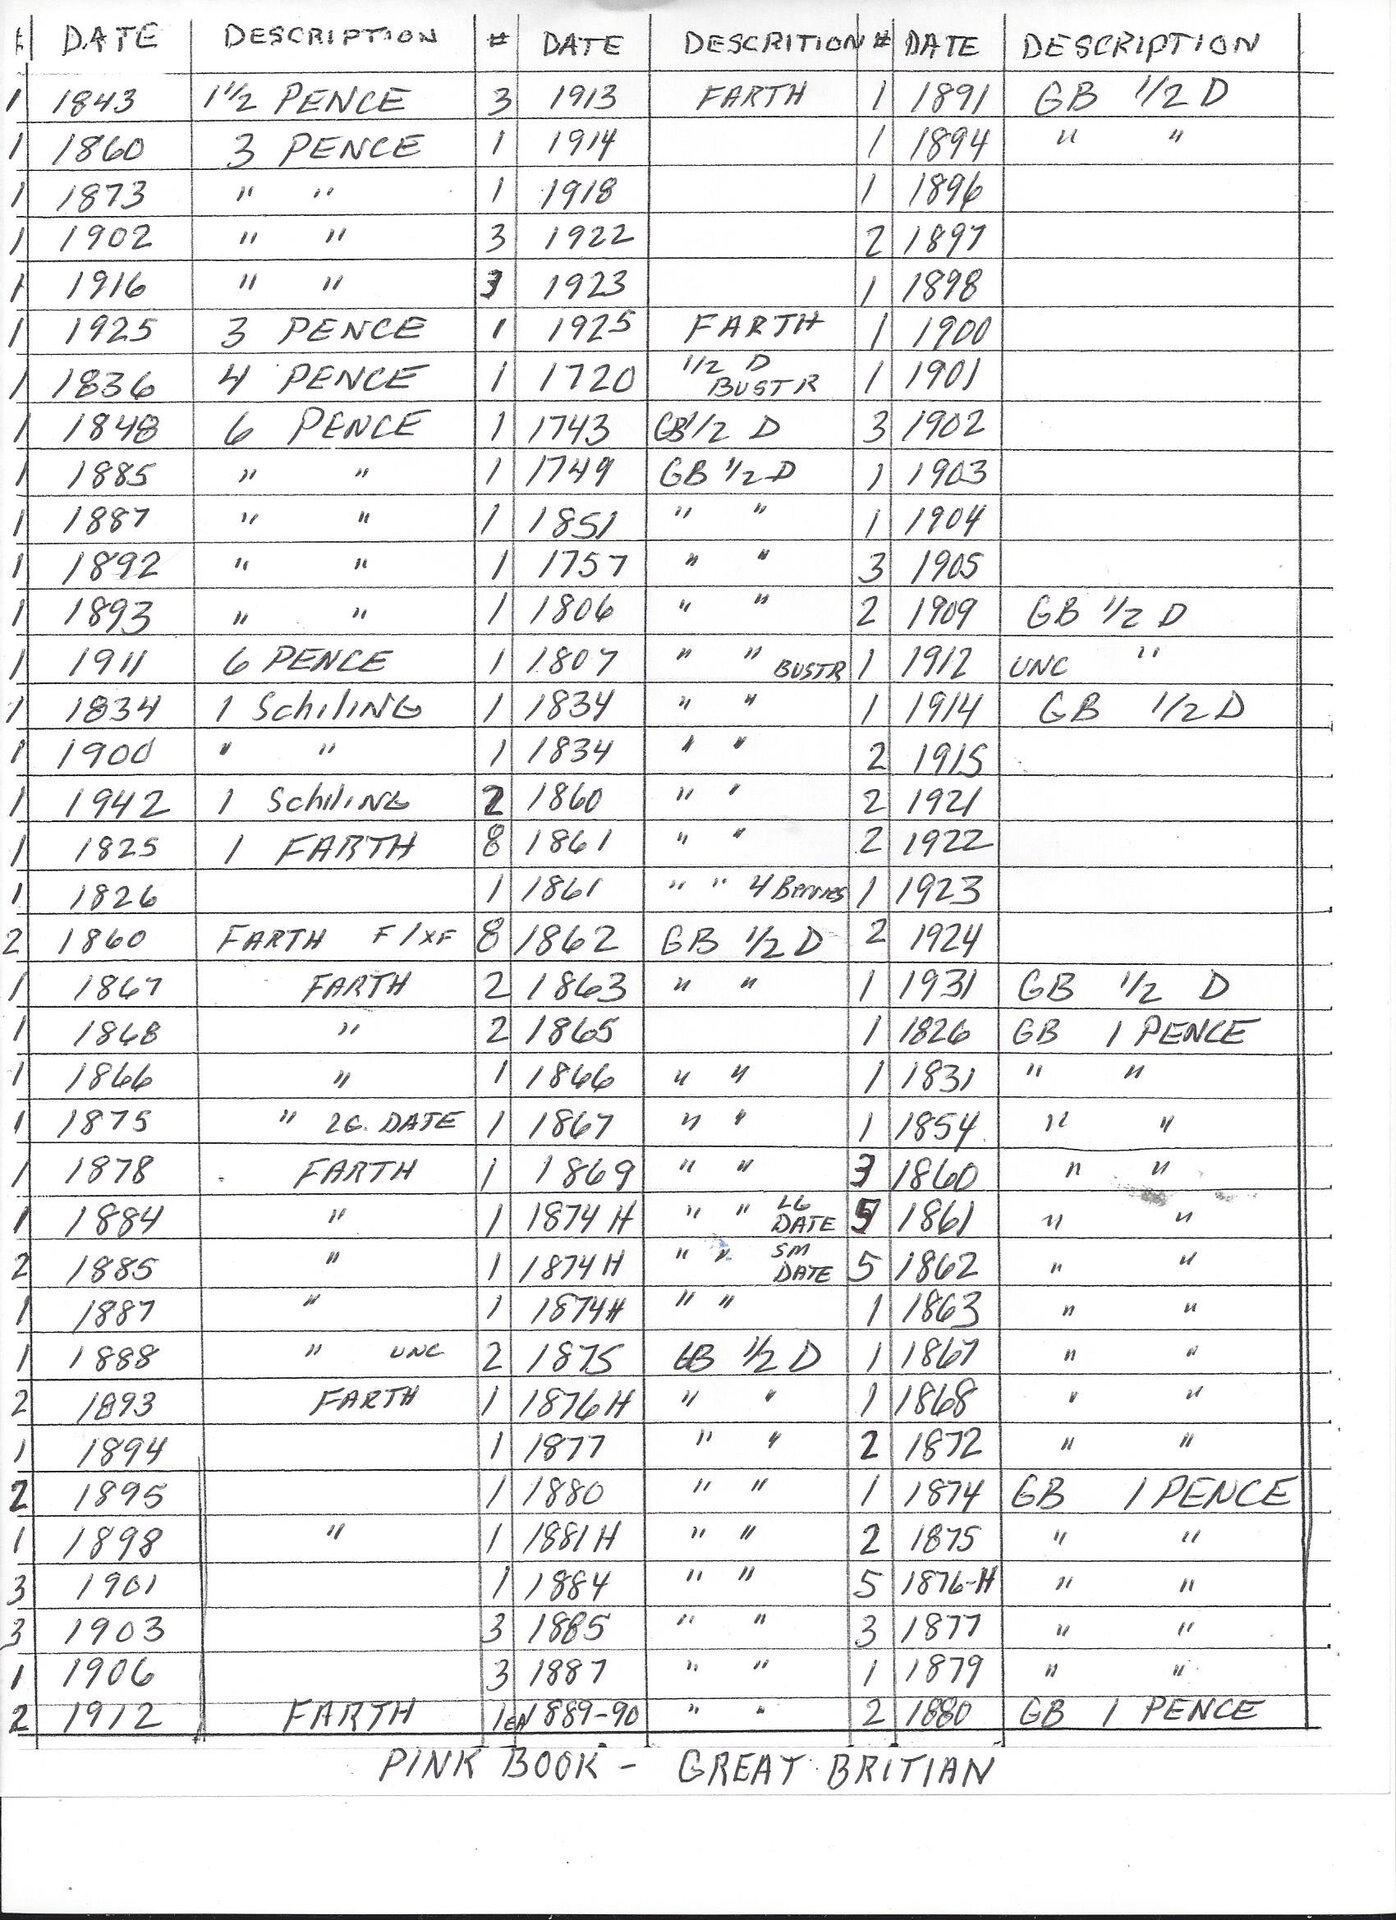 # DATE DESCRIPTION # DATE DESCRITION # DATE DESCRIPTION
1 1843 1 1/2 PENCE 3 1913 FARTH 1 1891 GB 1/2 D
1 1860 3 PENCE 1 1914 1 1894 " "
1 1873 " " 1 1918 1 1896
1 1902 " " 3 1922 2 1897
1 1916 " " 3 1923 1 1898
1 1925 3 PENCE 1 1925 FARTH 1 1900
1 1836 4 PENCE 1 1720 1/2 D BUSTR 1 1901
1 1848 6 PENCE 1 1743 GB 1/2 D 3 1902
1 1885 " " 1 1749 GB 1/2 D 1 1903
1 1887 " " 1 1851 " " 1 1904
1 1892 " " 1 1757 " " 3 1905
1 1893 " " 1 1806 " " 2 1909 GB 1/2 D
1 1911 6 PENCE 1 1807 " " BUSTR 1 1912 UNC "
1 1834 1 Schiling 1 1834 " " 1 1914 GB 1/2 D
1 1900 " " 1 1834 " " 2 1915
1 1942 1 Schiling 2 1860 " " 2 1921
1 1825 1 FARTH 8 1861 " " 2 1922
1 1826 1 1861 " " 4 Berries 1 1923
2 1860 FARTH F/XF 8 1862 GB 1/2 D 2 1924
1 1867 FARTH 2 1863 " " 1 1931 GB 1/2 D
1 1868 " 2 1865 1 1826 GB 1 PENCE
1 1866 " 1 1866 " " 1 1831 " "
1 1875 " DATE 1 1867 " " 1 1854 " "
1 1878 FARTH 1 1869 " " 3 1860 " "
1 1884 " 1 1874 H " " LG DATE 5 1861 " "
2 1885 " 1 1874 H " " SM DATE 5 1862 " "
1 1887 " 1 1874H " " 1 1863 " "
1 1888 " UNC 2 1875 GB 1/2 D 1 1867 " "
2 1893 FARTH 1 1876 H " " 1 1868 " "
1 1894 1 1877 " " 2 1872 " "
2 1895 1 1880 " " 1 1874 GB 1 PENCE
1 1898 " 1 1881 H " " 2 1875 " "
3 1901 1 1884 " " 5 1876-H " "
3 1903 3 1885 " " 3 1877 " "
1 1906 3 1887 " " 1 1879 " "
2 1912 FARTH 1 EA 1889-90 " " 2 1880 GB 1 PENCE
PINK BOOK - GREAT BRITIAN